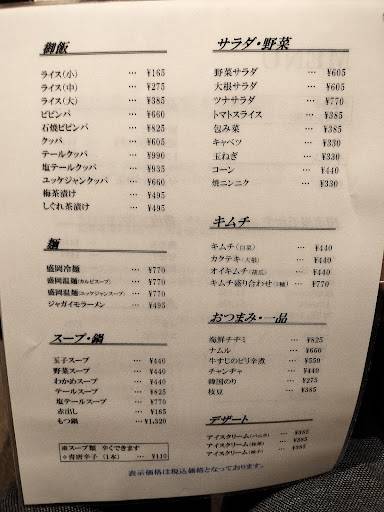 御飯
ライス(小) … ¥165
ライス(中) … ¥275
ライス(大) … ¥385
ビビンバ … ¥660
石焼ビビンバ … ¥825
クッパ … ¥605
テールクッパ … ¥990
塩テールクッパ … ¥935
ユッケジャンクッパ … ¥660
梅茶漬け … ¥495
しぐれ茶漬け … ¥495
麺
盛岡冷麺 … ¥770
盛岡温麺(カルビスープ) … ¥770
盛岡温麺(ユッケジャンスープ) … ¥770
ジャガイモラーメン … ¥495
スープ・鍋
玉子スープ … ¥440
野菜スープ … ¥440
わかめスープ … ¥440
テールスープ … ¥825
塩テールスープ … ¥770
赤出し … ¥165
もつ鍋 … ¥1,320
※スープ類 辛くできます
◇青唐辛子(1本) … ¥110
サラダ・野菜
野菜サラダ … ¥605
大根サラダ … ¥605
ツナサラダ … ¥770
トマトスライス … ¥385
包み菜 … ¥385
キャベツ … ¥330
玉ねぎ … ¥330
コーン … ¥440
焼ニンニク … ¥330
キムチ
キムチ(白菜) … ¥440
カクテキ(大根) … ¥440
オイキムチ(胡瓜) … ¥440
キムチ盛り合わせ(3種) … ¥770
おつまみ・一品
海鮮チヂミ … ¥825
ナムル … ¥660
牛すじのピリ辛煮 … ¥550
チャンヂャ … ¥440
韓国のり … ¥275
枝豆 … ¥385
デザート
アイスクリーム(バニラ) … ¥385
アイスクリーム … ¥385
アイスクリーム(柚子) … ¥385
表示価格は税込価格となっております。